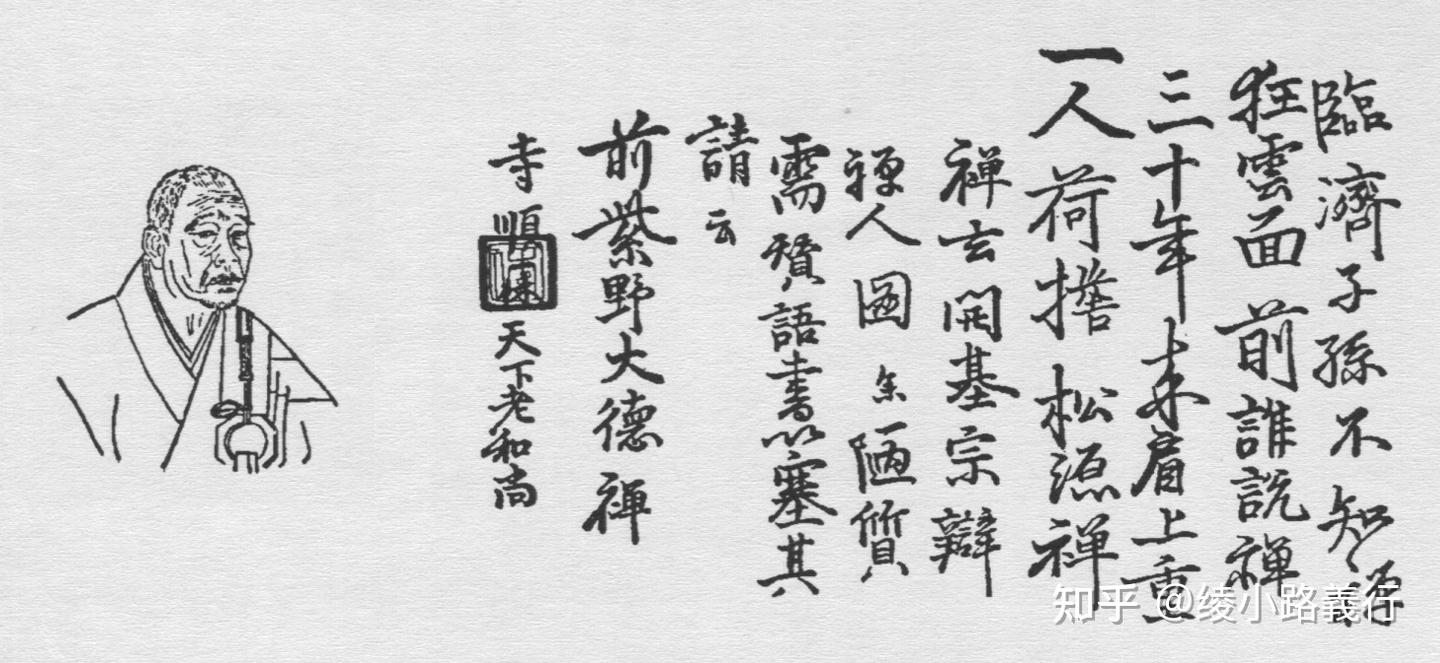 臨濟子孫不知禪
狂雲面前誰説禪
三十年来肩上重
一人荷擔松源禪
禅玄開基宗
禅人圖 陋質
需賛語書以塞其
請云
前紫野大德禅
寺 順 天下老和尚
知乎 @绫小路義行